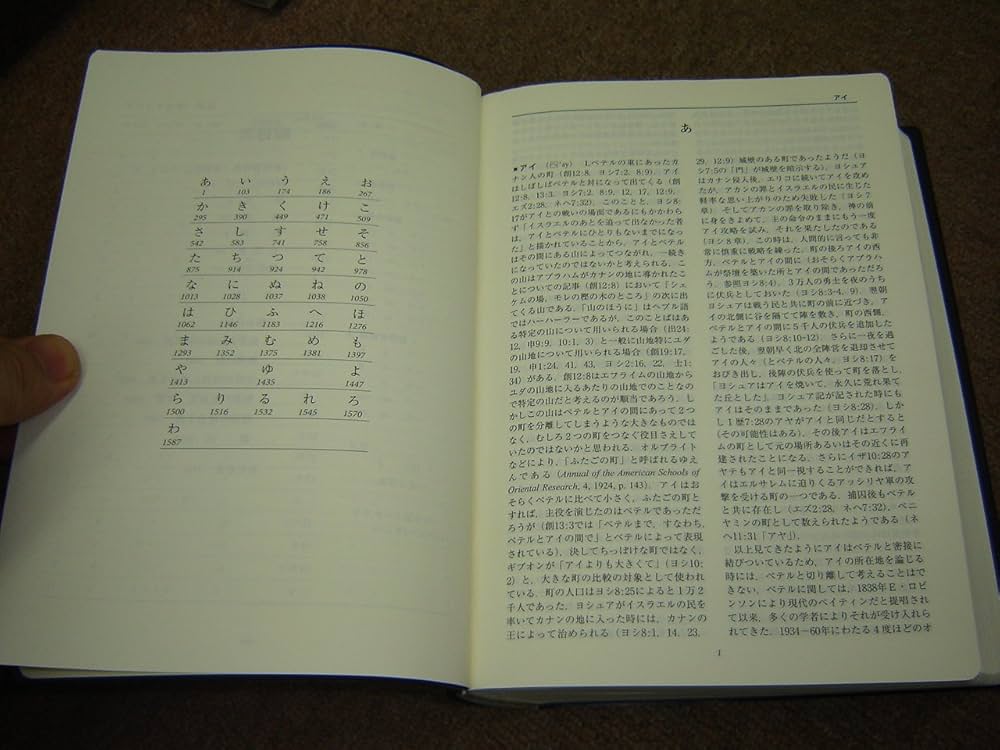 あ い う え お
1 103 174 186 267
か き く け こ
295 390 449 471 509
さ し す せ そ
542 583 741 758 856
た ち つ て と
875 914 924 942 978
な に ぬ ね の
1013 1028 1037 1038 1050
は ひ ふ へ ほ
1062 1146 1183 1216 1276
ま み む め も
1293 1352 1375 1381 1397
や ゆ よ
1413 1435 1447
ら り る れ ろ
1500 1516 1532 1545 1570
わ
1587
アイ
あ
■アイ 1.ベテルの東にあったカ
ナン人の町（創12:8，ヨシ7:2，8:9）．アイ
はしばしばベテルと対になって出てくる（創
12:8，13:3，ヨシ7:2，8:9，12，17，12:9，
エズ2:28，ネヘ7:32）．このことと，ヨシ8:
17がアイとの戦いの場面であるにもかかわら
ず「イスラエルのあとを追って出なかった者
は，アイとベテルにひとりもないまでになっ
た」と描かれていることから，アイとベテル
はその間にある山によってつながれ，一続き
になっていたのではないかと考えられる．こ
の山はアブラハムがカナンの地に導かれたこ
とについての記事（創12:8）において「シェ
ケムの場，モレの樫の木のところ」の次に出
てくる山である．「山のほうに」はヘブル語
ではハーハーラーであるが，このことばはあ
る特定の山について用いられる場合（出24:
12，申9:9，10:1，3）と一般に山地特にユダ
の山地について用いられる場合（創19:17，
19，申1:24，41，43，ヨシ2:16，22，士1:
34）がある．創12:8はエフライムの山地から
ユダの山地に入るあたりの山地でのことなの
で特定の山だと考えるのが順当であろう．し
かしこの山はベテルとアイの間にあって2つ
の町を分離してしまうような大きなものでは
なく，むしろ2つの町をつなぐ役目さえして
いたのではないかと思われる．オルブライト
などにより，「ふたごの町」と呼ばれるゆえ
んである（Annual of the American Schools of
Oriental Research, 4, 1924, p. 143）．アイはお
そらくベテルに比べて小さく，ふたごの町と
すれば，主役を演じたのはベテルであっただ
ろうが（創13:3では「ベテルまで，すなわち，
ベテルとアイの間で」とベテルによって表現
されている），決してちっぽけな町ではなく，
ギブオンが「アイよりも大きくて」（ヨシ10:
2）と，大きな町の比較の対象として使われ
ている．町の人口はヨシ8:25によると1万2
千人であった．ヨシュアがイスラエルの民を
率いてカナンの地に入った時には，カナンの
王によって治められる（ヨシ8:1，14，23，
29，12:9）城壁のある町であったようだ（ヨ
シ7:5の「門」が城壁を暗示する）．ヨシュア
はカナン侵入後，エリコに続いてアイを攻め
たが，アカンの罪とイスラエルの民に生じた
軽率な思い上がりのため失敗した（ヨシ7
章）．そしてアカンの罪を取り除き，神の前
に身をきよめて，主の命令のままにもう一度
アイ攻略を試み，それを果たしたのである
（ヨシ8章）．この時は，人間的に言っても非
常に慎重に戦略を練った．町の後ろアイの西
方，ベテルとアイの間に（おそらくアブラハ
ムが祭壇を築いた所とアイの間であっただろ
う．参照ヨシ8:4），3万人の勇士を夜のうち
に伏兵としておいた（ヨシ8:3-4，9）．翌朝
ヨシュアは戦う民と共に町の前に近づき，ア
イの北側に谷を隔てて陣を敷き，町の西側，
ベテルとアイの間に5千人の伏兵を追加した
ようである（ヨシ8:10-12）．さらに一夜を過
ごした後，翌朝早く北の全陣営を退却させて
アイの人々（とベテルの人々，ヨシ8:17）を
おびき出し，後陣の伏兵を使って町を落とし，
「ヨシュアはアイを焼いて，永久に荒れ果て
た丘とした」．ヨシュア記が記された時にも
アイはそのままであった（ヨシ8:28）．しか
し1歴7:28のアヤがアイと同じだとすると
（その可能性はある），その後アイはエフライ
ムの町として元の場所あるいはその近くに再
建されたことになる．さらにイザ10:28のア
ヤテもアイと同一視することができれば，ア
イはエルサレムに迫りくるアッシリヤ軍の攻
撃を受ける町の一つである．捕囚後もベテル
と共に存在し（エズ2:28，ネヘ7:32），ベニ
ヤミンの町として数えられたようである（ネ
ヘ11:31「アヤ」）．
以上見てきたようにアイはベテルと密接に
結びついているため，アイの所在地を論じる
時には，ベテルと切り離して考えることはで
きない．ベテルに関しては，1838年E・ロビ
ンソンにより現代のベイティンだと提唱され
て以来，多くの学者によりそれが受け入れら
れてきた．1934―60年にわたる4度ほどのオ
1